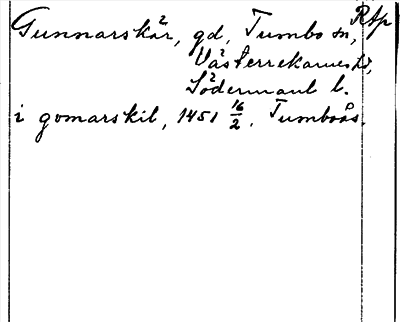 Rtp
Gunnarskär, gd, Tumbo sn,
Västerrekarne hd,
Södermanl l.
i gomarskil, 1451 16/2. Tumboås.